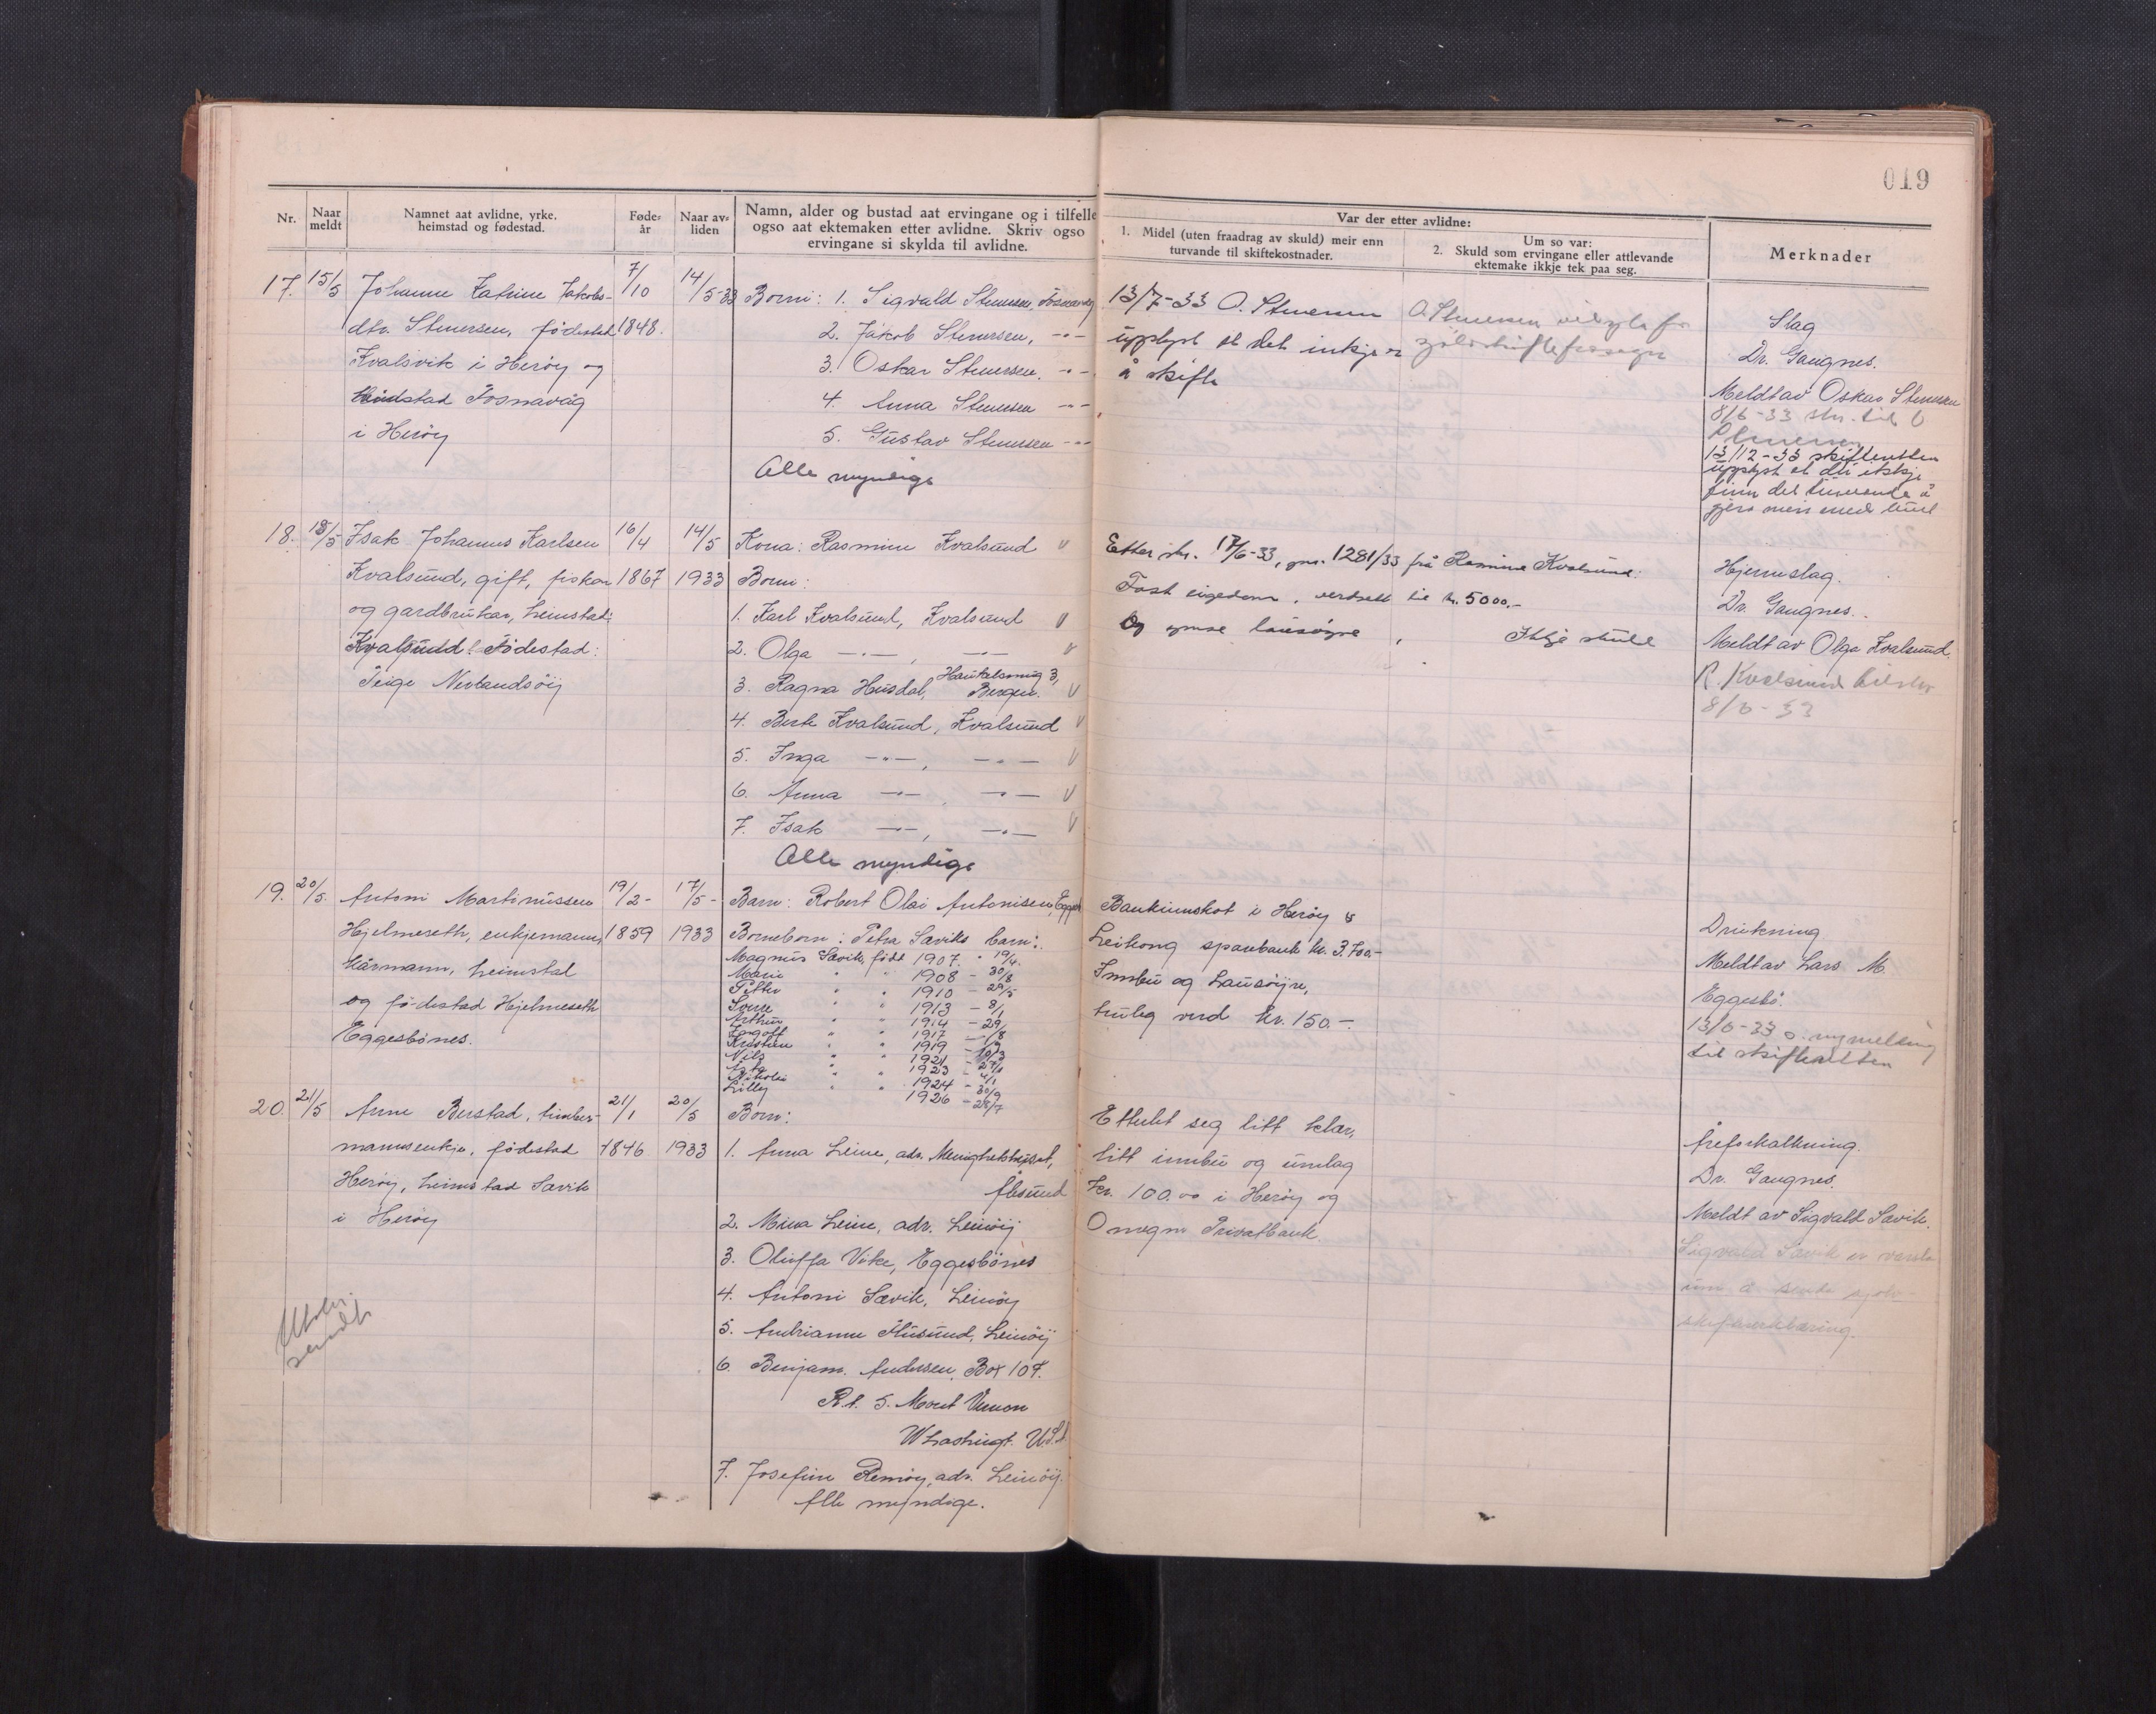 019
Nr.
Naar meldt
Namnet aat avlidne, yrke, heimstad og fødestad.
Føde-år
Naar av-liden
Namn, alder og bustad aat ervingane og i tilfelle
ogso aat ektemaken etter avlidne. Skriv ogso
ervingane si skylda til avlidne.
Var der etter avlidne:
1. Midel (uten fraadrag av skuld) meir enn
turvande til skiftekostnader.
Um so var:
2. Skuld som ervingane eller attlevande
ektemake ikkje tek paa seg.
Merknader
17. 15/5 Johanne Katrine Jakobs-
dtr. Stenersen, fødestad
Kvalsvik i Herøy og
heimstad Fosnavåg
i Herøy
7/10
1848.
14/5-33
Born: 1. Sigvald Stenersen, Fosnavåg
2. Jakob Stenersen, -"-
3. Oskar Stenersen. -"-
4. Anna Stenersen -"-
5. Gustav Stenersen -"-
Alle myndige
13/7-33 O. Stenersen
upplyst at det inkje er
å skifte
O. Stenersen
Slag
Dr. Gaugnes.
Meldt av Oskar Stenersen
8/6-33 skr. til O
Stenersen
13/12-33 skifteretten
upplyst at dei ikkje
finn det turvande å
gjera meir med buet
18. 18/5 Isak Johannes Karlsen
Kvalsund, gift, fiskar
og gardbrukar, heimstad:
Kvalsund. Fødestad:
Teige Nerlandsöy
16/4
1867
14/5
1933
Kona: Rasmine Kvalsund v
Born:
1. Karl Kvalsund, Kvalsund v
2. Olga -"-, -"- v
3. Ragna Husdal, Haukelandsmug 3, Bergen. v
4. Berte Kvalsund, Kvalsund v
5. Inga -"-, -"- v
6. Anna -"-, -"- v
7. Isak -"-, -"- v
Alle myndige
Etter skr. 17/6-33, jnr. 1281/33 frå Rasmine Kvalsund:
Fast eigedom, verdsett til kr. 5000.-
Og ymse lausøyre, Ikkje skuld
Hjerneslag.
Dr. Gaugnes.
Meldt av Olga Kvalsund.
R. Kvalsund tilskr.
8/6-33
19. 20/5. Antoni Martinussen
Hjelmeseth, enkjemann,
kårmann, heimstad
og fødestad Hjelmeseth
Eggesbönes.
19/2-
1859
17/5-
1933
Barn: Robert Olai Antonisen,
Borneborn: Petra Sæviks barn:
Magnus Sævik, født 1907. " 19/4.
Marie " " 1908 - 30/8
Petter " " 1910 - 28/5
Sverre " " 1913 - 8/1
Arthur " " 1914 - 29/
Ingolf " " 1917 - /8
Kristian " " 1919 -
Nils " " 1921 - 10/3
" " 1923 - 27/
Nikolai " " 1924 - 30/9
Lilly " " 1926 - 28/7
Bankinnskot i Herøy &
Leikong sparebank kr. 3.700.-
Innbu og Lausöyre,
truleg verd kr. 150.-.
Drukning
Meldt av Lars M.
Eggesbö.
13/6-33 s. nymelding
til skifteretten
20. 21/5 Anne Berstad, timber-
mannsenkje, fødestad
Herøy, heimstad Sævik
i Herøy
21/1
1846
20/5
1933
Born:
1. Anna Leine, adr. Menighetshuset,
Ålesund
2. Mina Leine, adr. Leinöy
3. Oluffa Vike, Eggesbönes
4. Antoni Sævik, Leinöy
5. Andrianne Husund, Leinöy
6. Benjam. Andersen, Box 107.
R.t. 5. Mount Vernon
Whashingt. U.S.A.
7. Josefine Remöy, adr. Leinöy.
Alle myndige.
Etterlet seg litt klær,
litt innbu og umlag
Kr. 100.00 i Herøy og
Omegn Privatbank.
Åreforkalkning.
Dr. Gaugnes.
Meldt av Sigvald Sævik.
Sigvald Sævik er varsla
um å sende sjølv-
skifteerklæring.